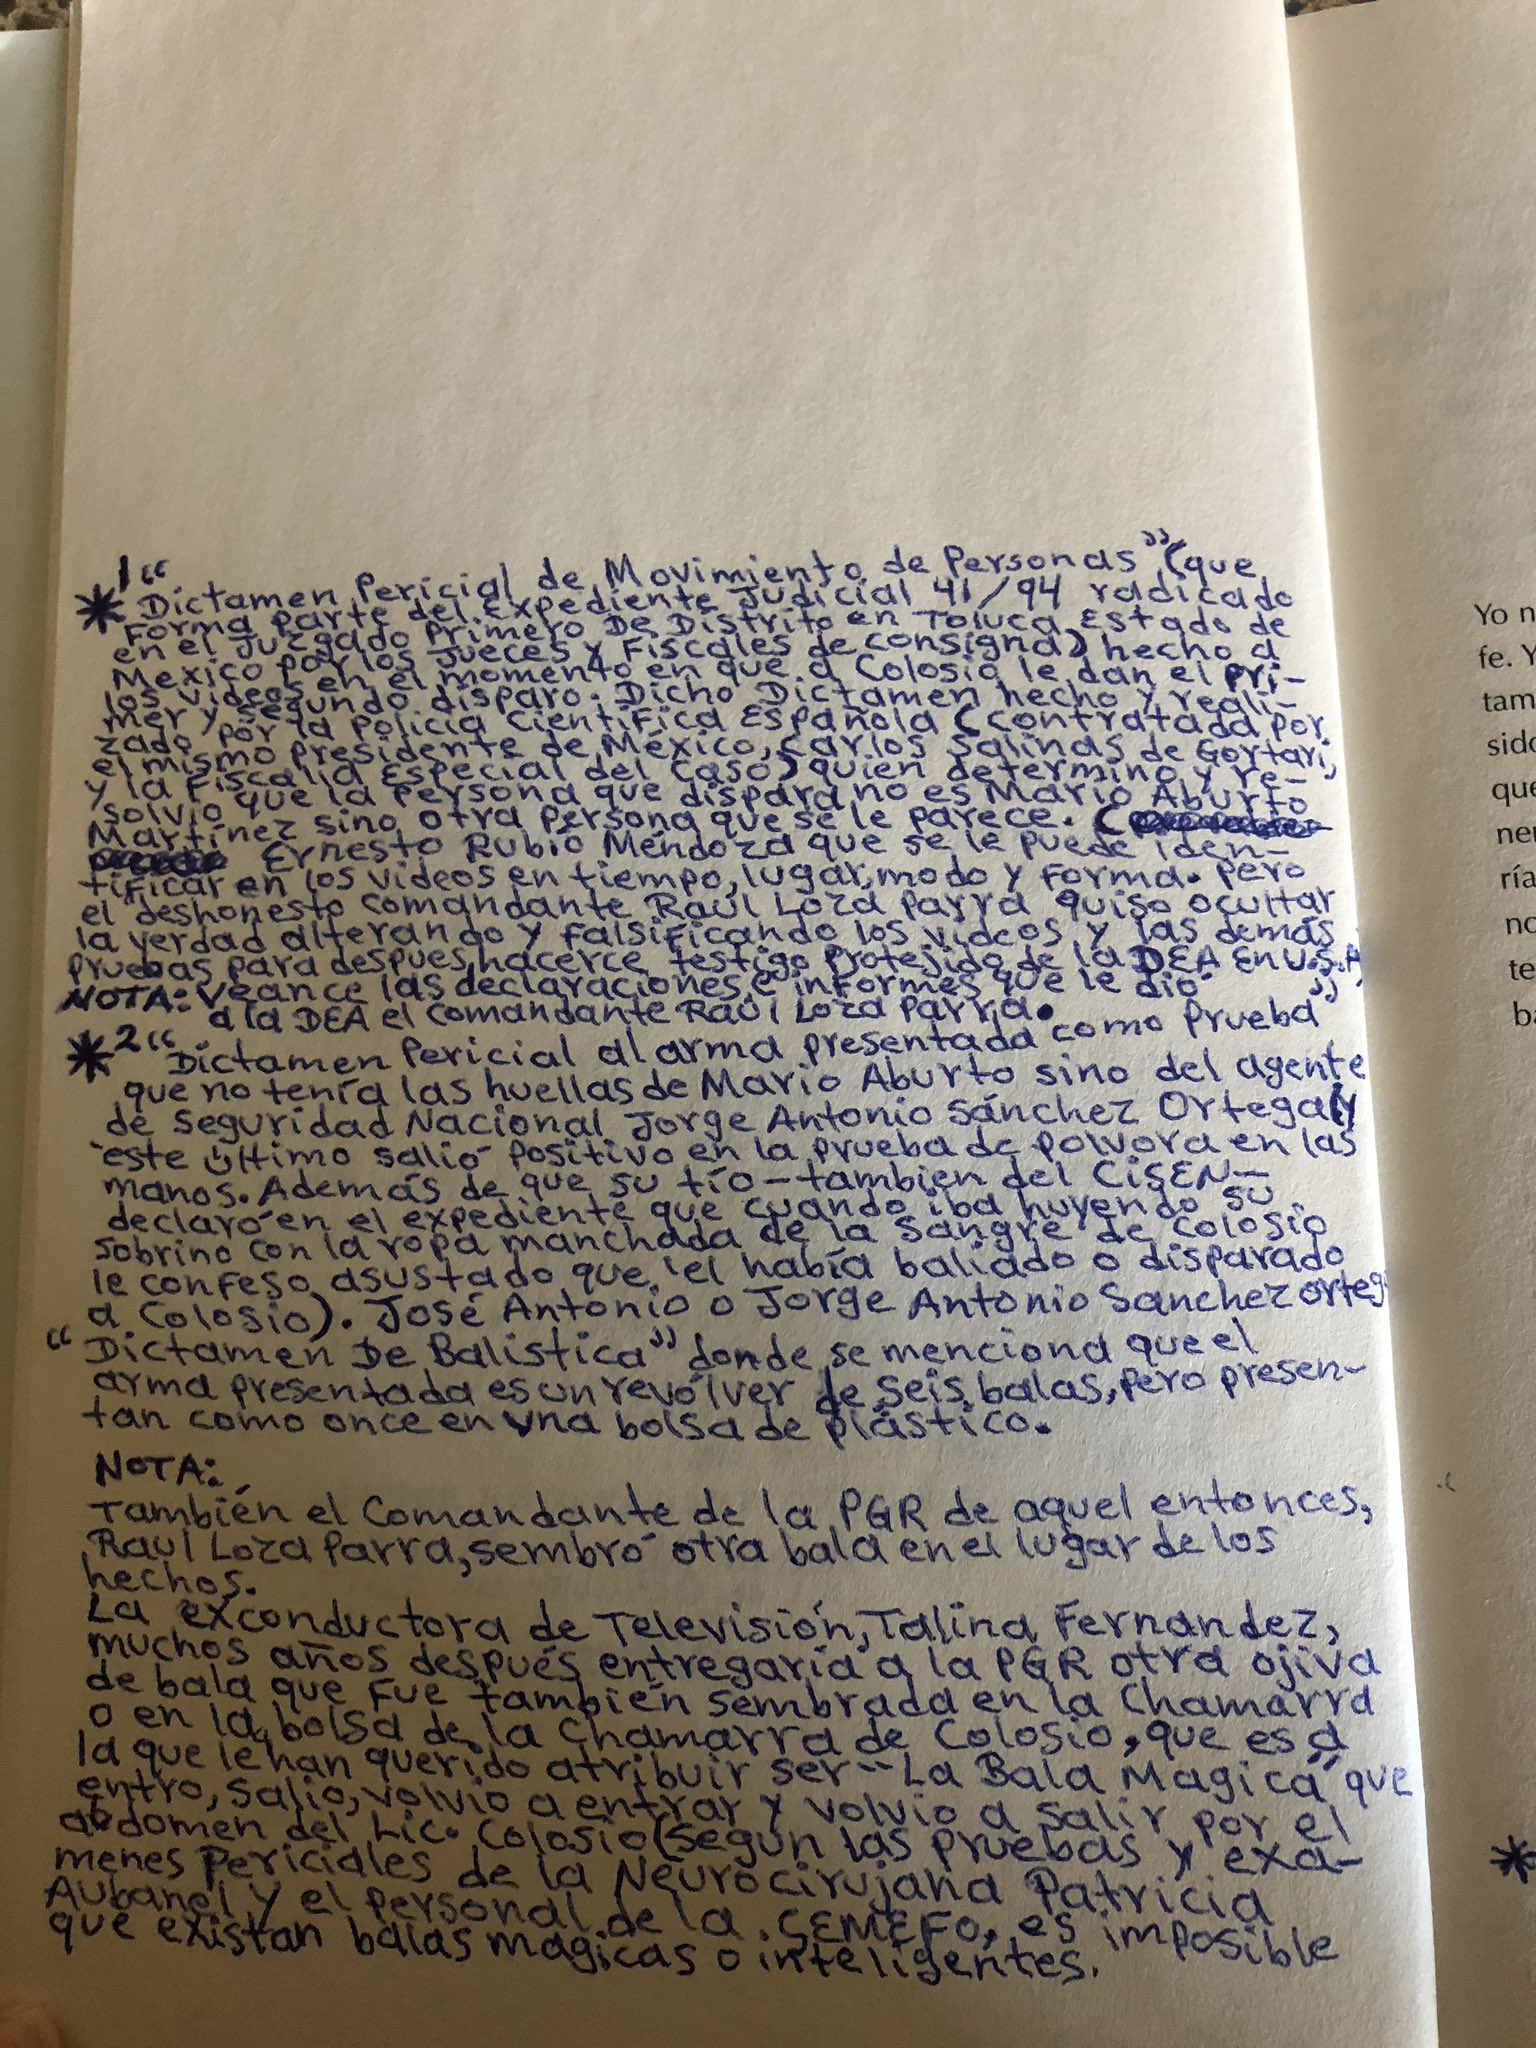 *1 "Dictamen Pericial de Movimiento de Personas" (que
Forma parte del Expediente Judicial 41/94 radicado
en el Juzgado Primero De Distrito en Toluca Estado de
Mexico por los Jueces y Fiscales de consigna) hecho a
los videos en el momento en que a Colosio le dan el pri-
mer y segundo disparo. Dicho Dictamen hecho y reali-
zado por la Policia Cientifica Española (contratada por
el mismo presidente de México, Carlos Salinas de Gortari,
y la Fiscalia Especial del Caso) quien determino y re-
solvio que la persona que dispara no es Mario Aburto
Martínez sino otra persona que se le parece. (
Ernesto Rubio Méndoza que se le puede iden-
tificar en los videos en tiempo, lugar, modo y forma. Pero
el deshonesto comandante Raúl Loza Parra quiso ocultar
la verdad alterando y falsificando los videos y las demás
pruebas para despues hacerce testigo protejido de la DEA en U.S.A
NOTA: Veance las declaraciones e informes que le dio
a la DEA el comandante Raúl Loza Parra.
*2 "Dictamen Pericial al arma presentada como prueba"
que no tenía las huellas de Mario Aburto sino del agente
de Seguridad Nacional Jorge Antonio Sánchez Ortega (y
este último salió positivo en la prueba de polvora en las
manos. Además de que su tío - tambien del CISEN -
declaró en el expediente que cuando iba huyendo su
sobrino con la ropa manchada de la sangre de Colosio
le confeso asustado que él había baliado o disparado
a Colosio). José Antonio o Jorge Antonio Sanchez Orteg
"Dictamen De Balistica" donde se menciona que el
arma presentada es un revólver de seis balas, pero presen-
tan como once en una bolsa de plástico.
NOTA:
También el Comandante de la PGR de aquel entonces,
Raúl Loza Parra, sembró otra bala en el lugar de los
hechos.
La exconductora de Televisión, Talina Fernandez,
muchos años después entregaría a la PGR otra ojiva
de bala que fue también sembrada en la chamarra
o en la bolsa de la chamarra de Colosio, que es a
la que le han querido atribuir ser "La Bala Magica" que
entro, salio, volvio a entrar y volvio a salir por el
abdomen del Lic. Colosio (según las pruebas y exa-
menes periciales de la Neurocirujana Patricia
Aubanel y el personal de la CEMEFO, es imposible
que existan balas magicas o inteligentes.
Yo n
fe. Y
tam
sido
que
ner
ría
no
te
ba
*